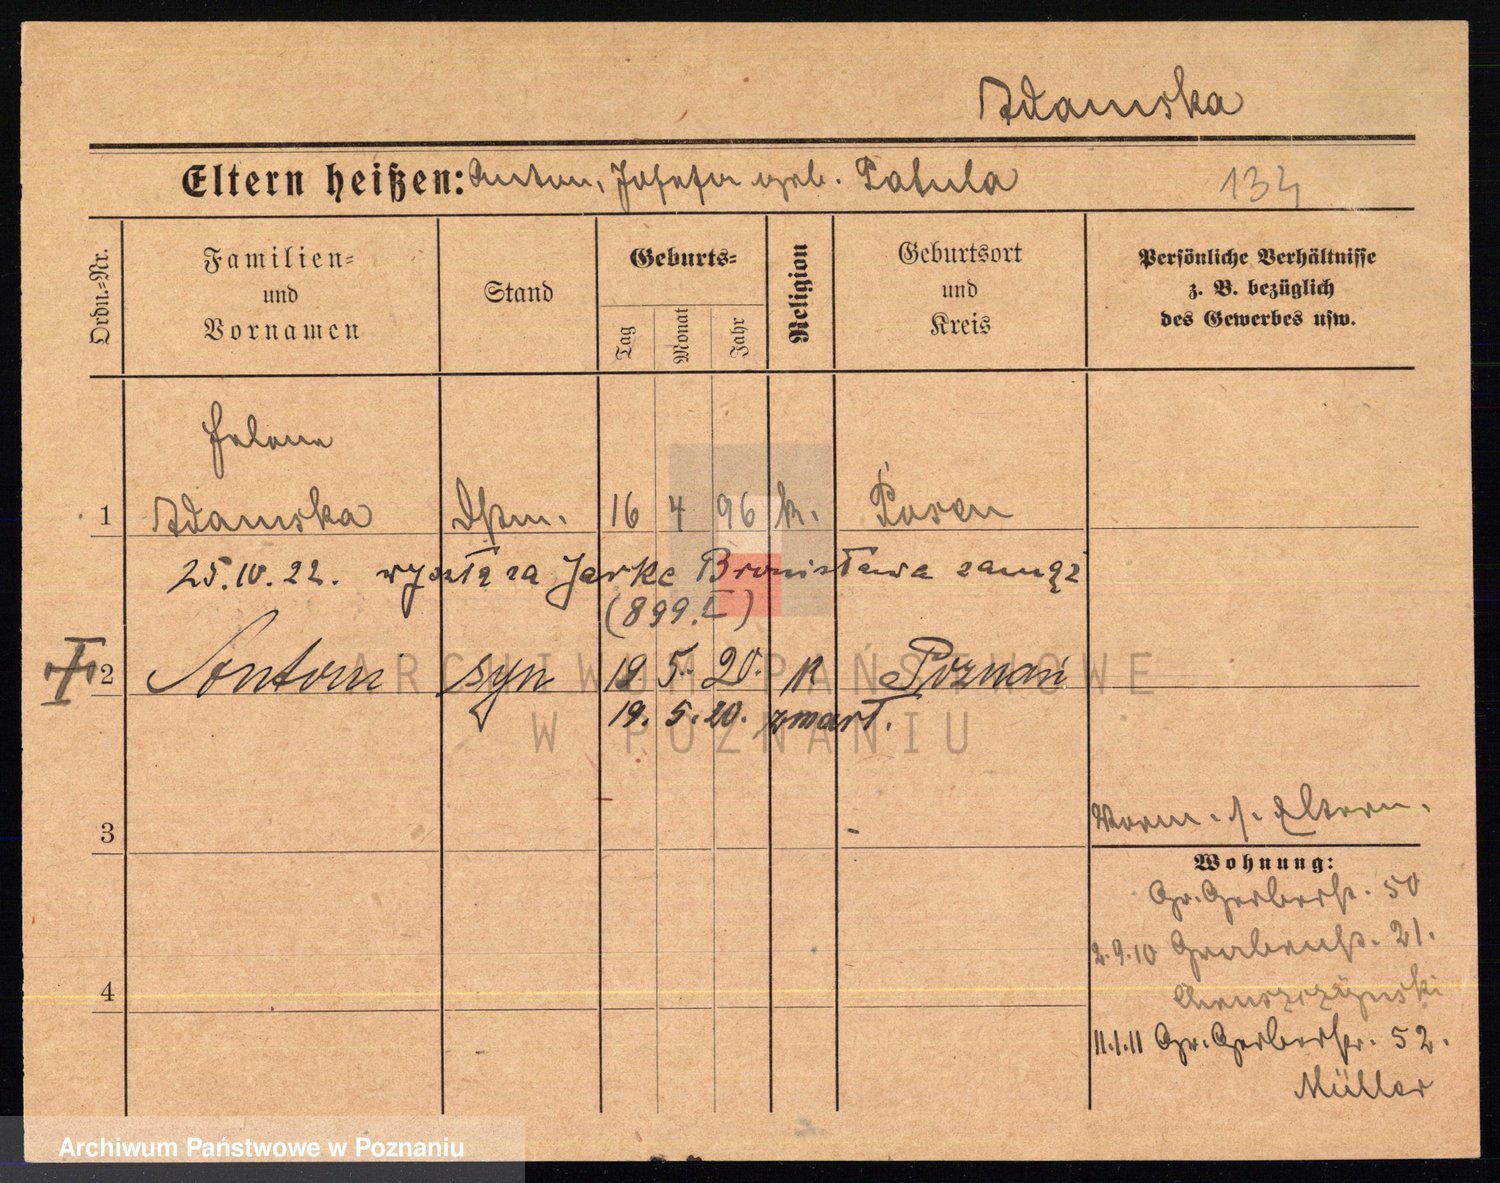 Adamska
Eltern heißen: Anton, Josefa geb. Patula 134
Ordn.=Nr.
Familien= und Vornamen
Stand
Geburts=
Tag Monat Jahr
Religion
Geburtsort und Kreis
Persönliche Verhältnisse z. B. bezüglich des Gewerbes usw.
Helene
1 Adamska Dstm. 16 4 96 k. Posen
25.10.22. wyszła za Jarke Bronisława zamąż
(899.I)
2 Antoni syn 19 5. 20. k Poznań
19. 5. 20. zmarł.
3
Vorm. s. Eltern.
Wohnung:
Gr. Gerberstr. 50
2.9.10 Grabenstr. 21.
4
11.1.11 Gr. Gerberstr. 52.
Müller
ARCHIWUM PAŃSTWOWE
W POZNANIU
Archiwum Państwowe w Poznaniu